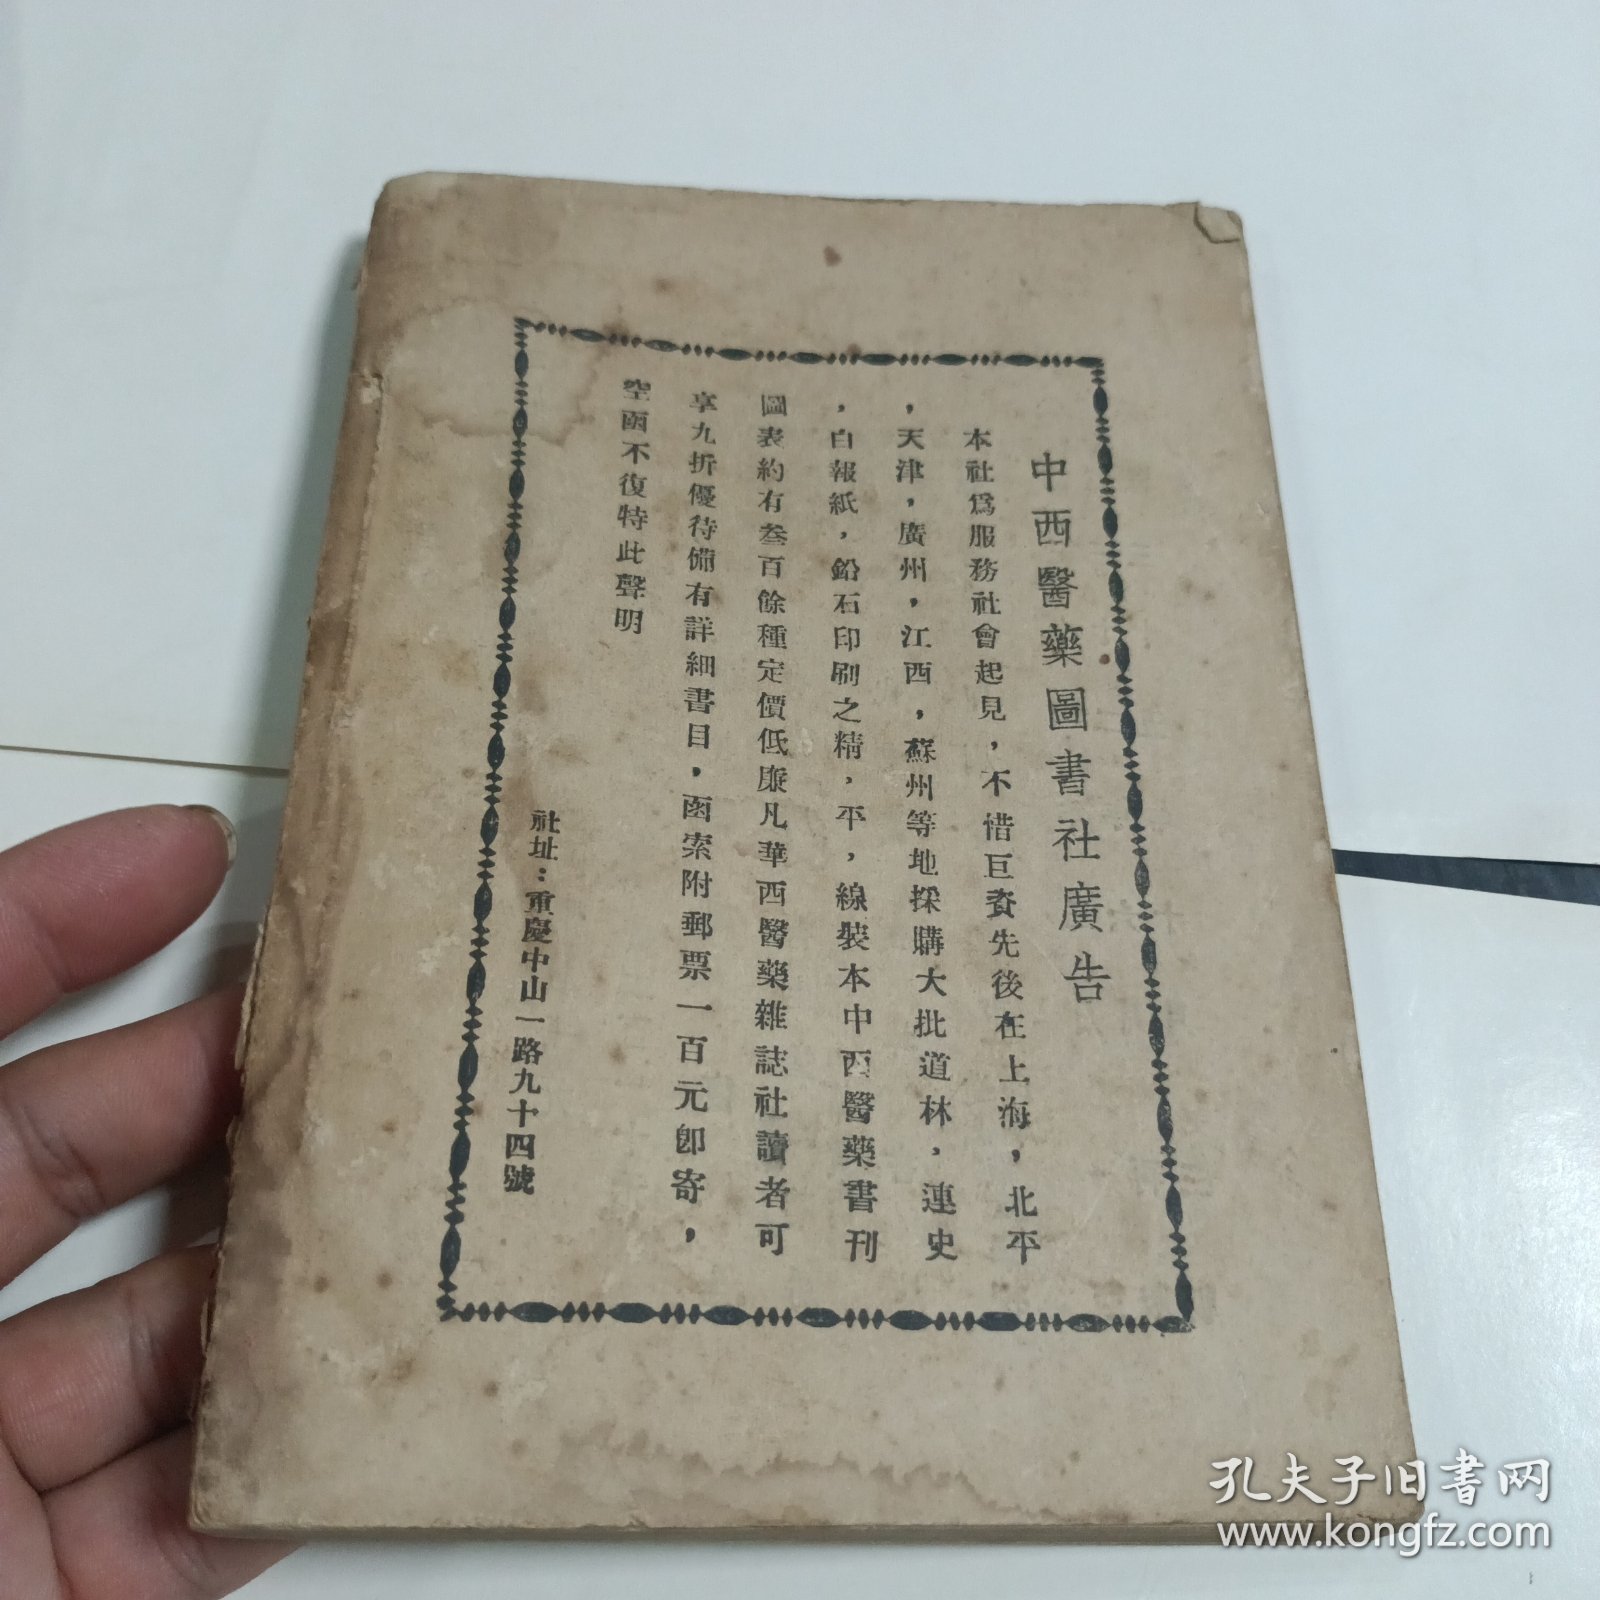 中西醫藥圖書社廣告
本社爲服務社會起見，不惜巨資先後在上海，北平
，天津，廣州，江西，蘇州等地採購大批道林，連史
，白報紙，鉛石印刷之精，平，線裝本中西醫藥書刊
圖表約有叁百餘種定價低廉凡華西醫藥雜誌社讀者可
享九折優待備有詳細書目，函索附郵票一百元卽寄，
空函不復特此聲明
社址：重慶中山一路九十四號
孔夫子旧书网
www.kongfz.com